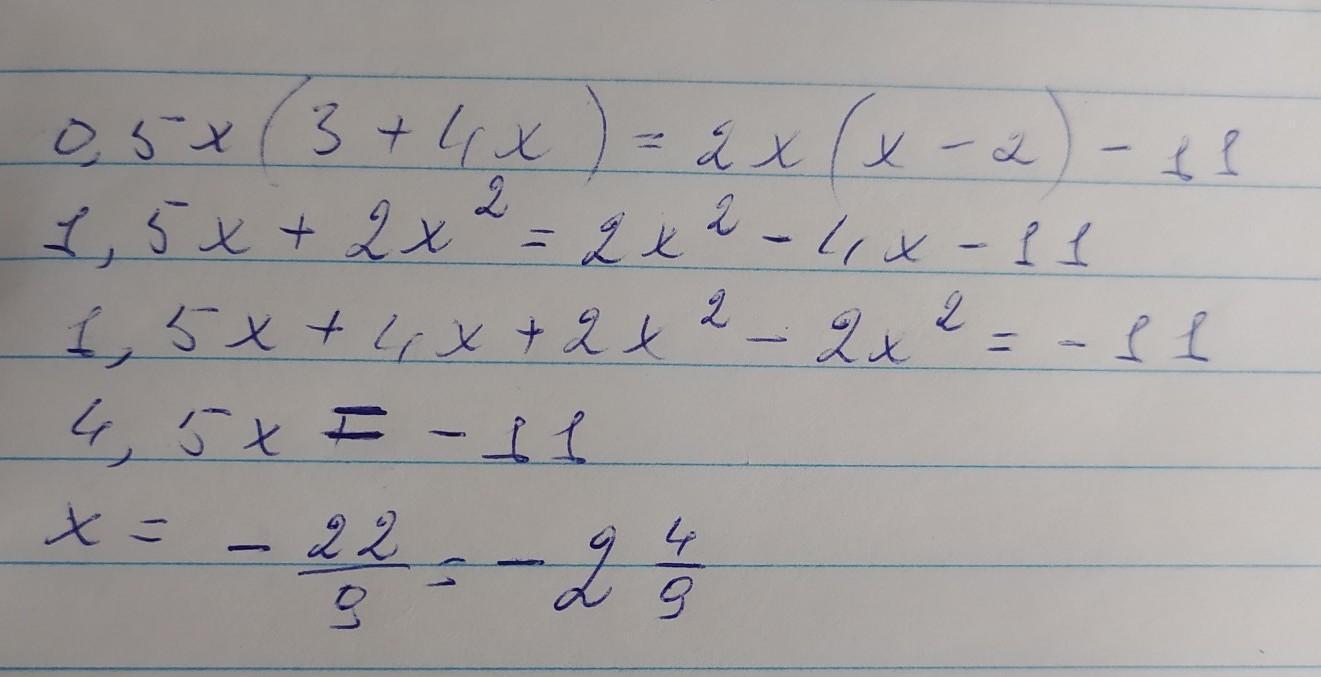 0,5x(3+4x)=2x(x-2)-11
1,5x+2x²=2x²-4x-11
1,5x+4x+2x²-2x²=-11
4,5x=-11
x=-22/9=-2 4/9